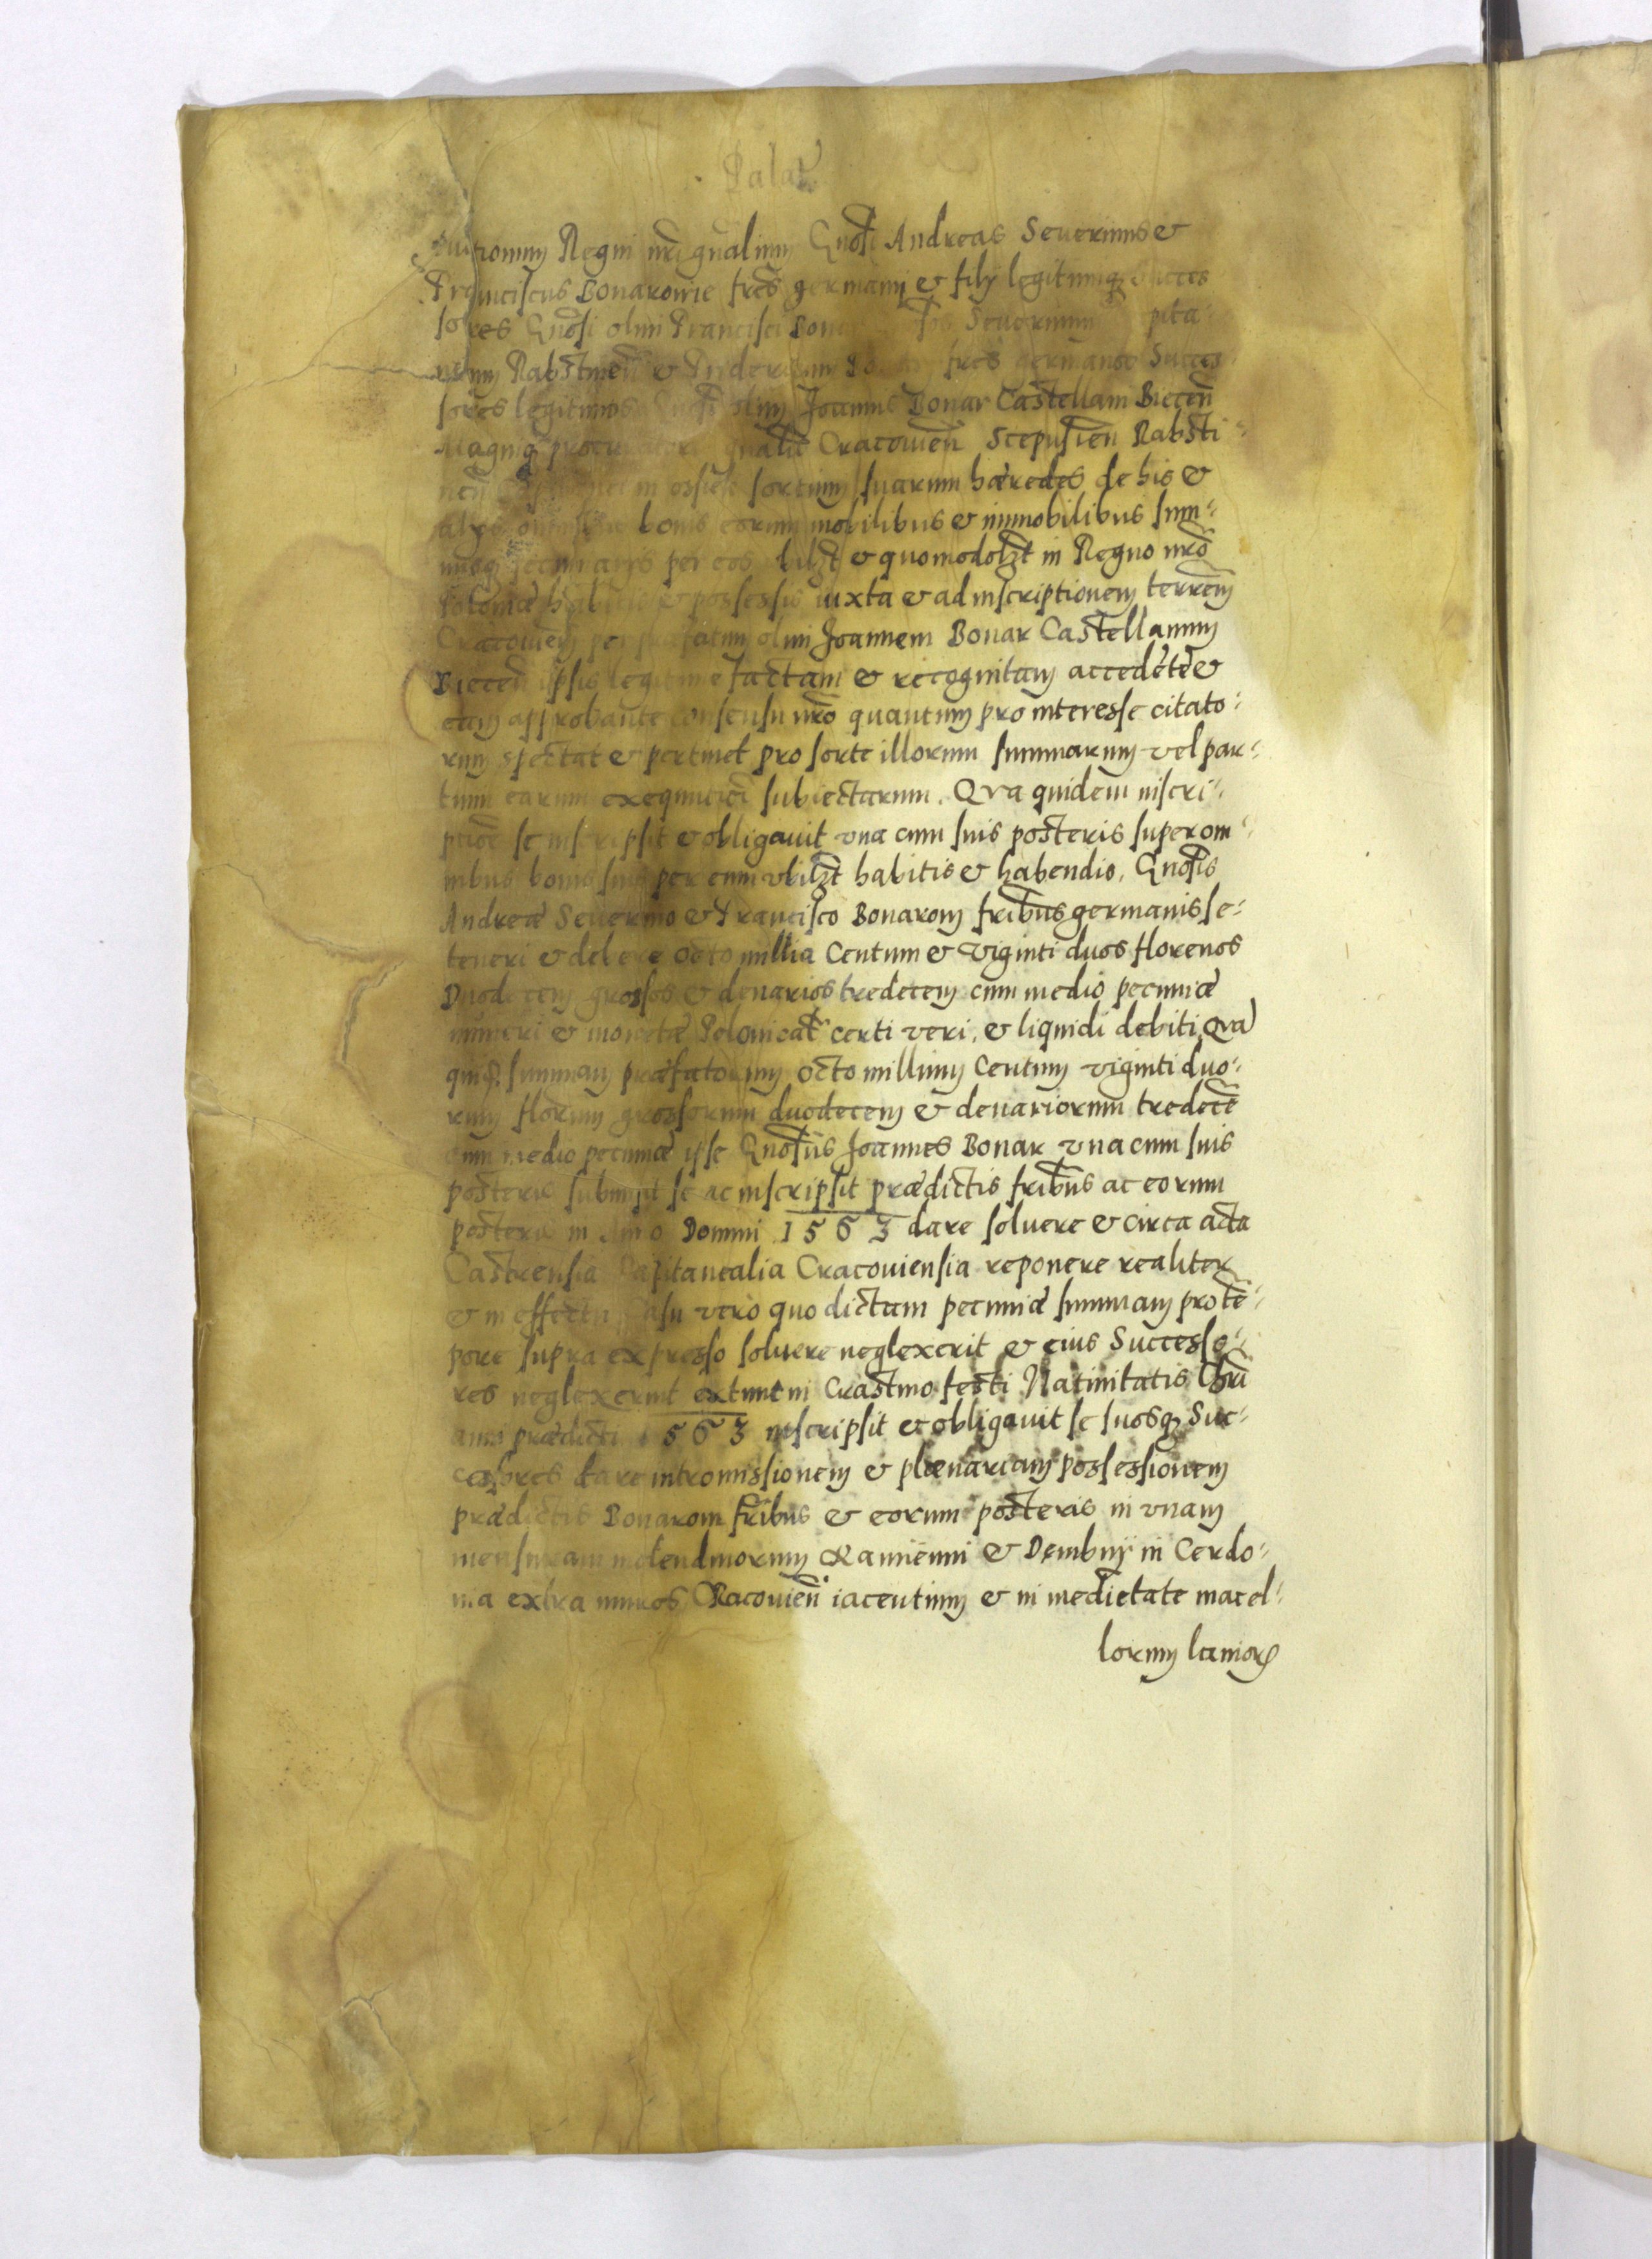 Palat
Regni nri gnalium Gnosi Andreas Severinus &
Franciscus Bonarowie fres germani & filij legitimiq Succes
sores Gnosi olim Francisci Severinum pita-
Rabstinen & fres germanos Succes
sores legitimos olim Joannis Bonar Castellani Biecen
Magniq gnalis Cracovien Scepusien Rabsti-
sortium suarum hæredes de his &
bonis eorum mobilibus & immobilibus sum-
per eos & quomodolzt in Regno nro
Poloniæ habitis & possessis iuxta & ad inscriptionem terrem
Cracovien per olim Joannem Bonar Castellanum
Biecen ipsis legitime factam & recognitam accedete &
eam approbante consensu nro quantum pro interesse citato-
rum spectat & pertinet pro sorte illorum summarum vel par-
tium earum subiectarum. Qva quidem inscri-
ptioe se inscripsit & obligavit vna cum suis posteris super om-
nibus bonis suis per eum vbilzt habitis & habendis. Gnosis
Andreæ Severino & Francisco Bonarom fribus germanis se-
teneri & debere octo millia Centum & viginti duos florenos
Duodecem grossos & denarios tredecem cum medio pecuniæ
numeri & monetæ Polonicat certi veri, & liquidi debiti. Qva
quiq summam præfatorum octo millium Centum viginti duo-
rum florum grossorum duodecem & denariorum tredece
cum medio pecuniæ ipse Gnosus Joannes Bonar vna cum suis
posteris submisit se ac inscripsit prædictis fribus ac eorum
posteris in Anno Domini 1563 dare soluere & circa acta
Castrensia Capitanealia Cracoviensia reponere realiter
& in effectu Casu vero quo dictam pecuniæ summam pro te-
pore supra expresso soluere neglexerit & eius Successo-
res neglexerint extunc in Crastino festi Nativitatis Chri
anni prædicti 1563 inscripsit & obligavit se suosq Suc-
cessores dare intromissionem & plænariam possessionem
prædictis Bonarom fribus & eorum posteris in vnam
mensuram molendinorum Kamienni & Dembnij in Cerdo-
nia extra muros Cracovien iacentium & in medietate macel-
lorum lanior